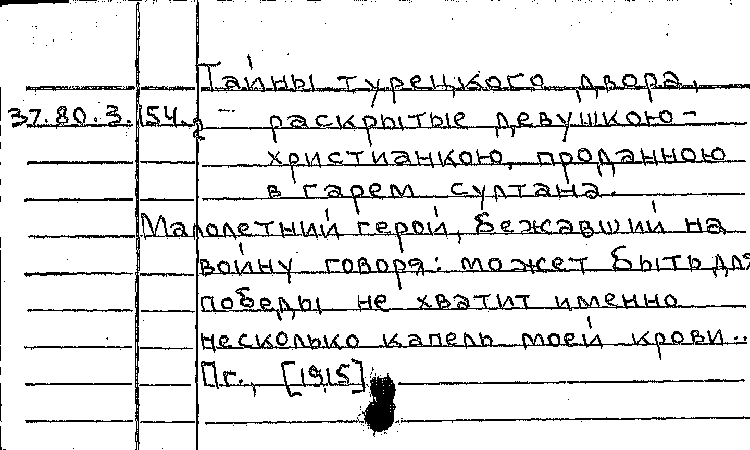 Тайны турецкого двора,
37.80.3.154. раскрытые девушкою-
христианкою, проданною
в гарем султана.
Малолетний герой, бежавший на
войну говоря: может быть для
победы не хватит именно
несколько капель моей крови..
Пг., [1915]